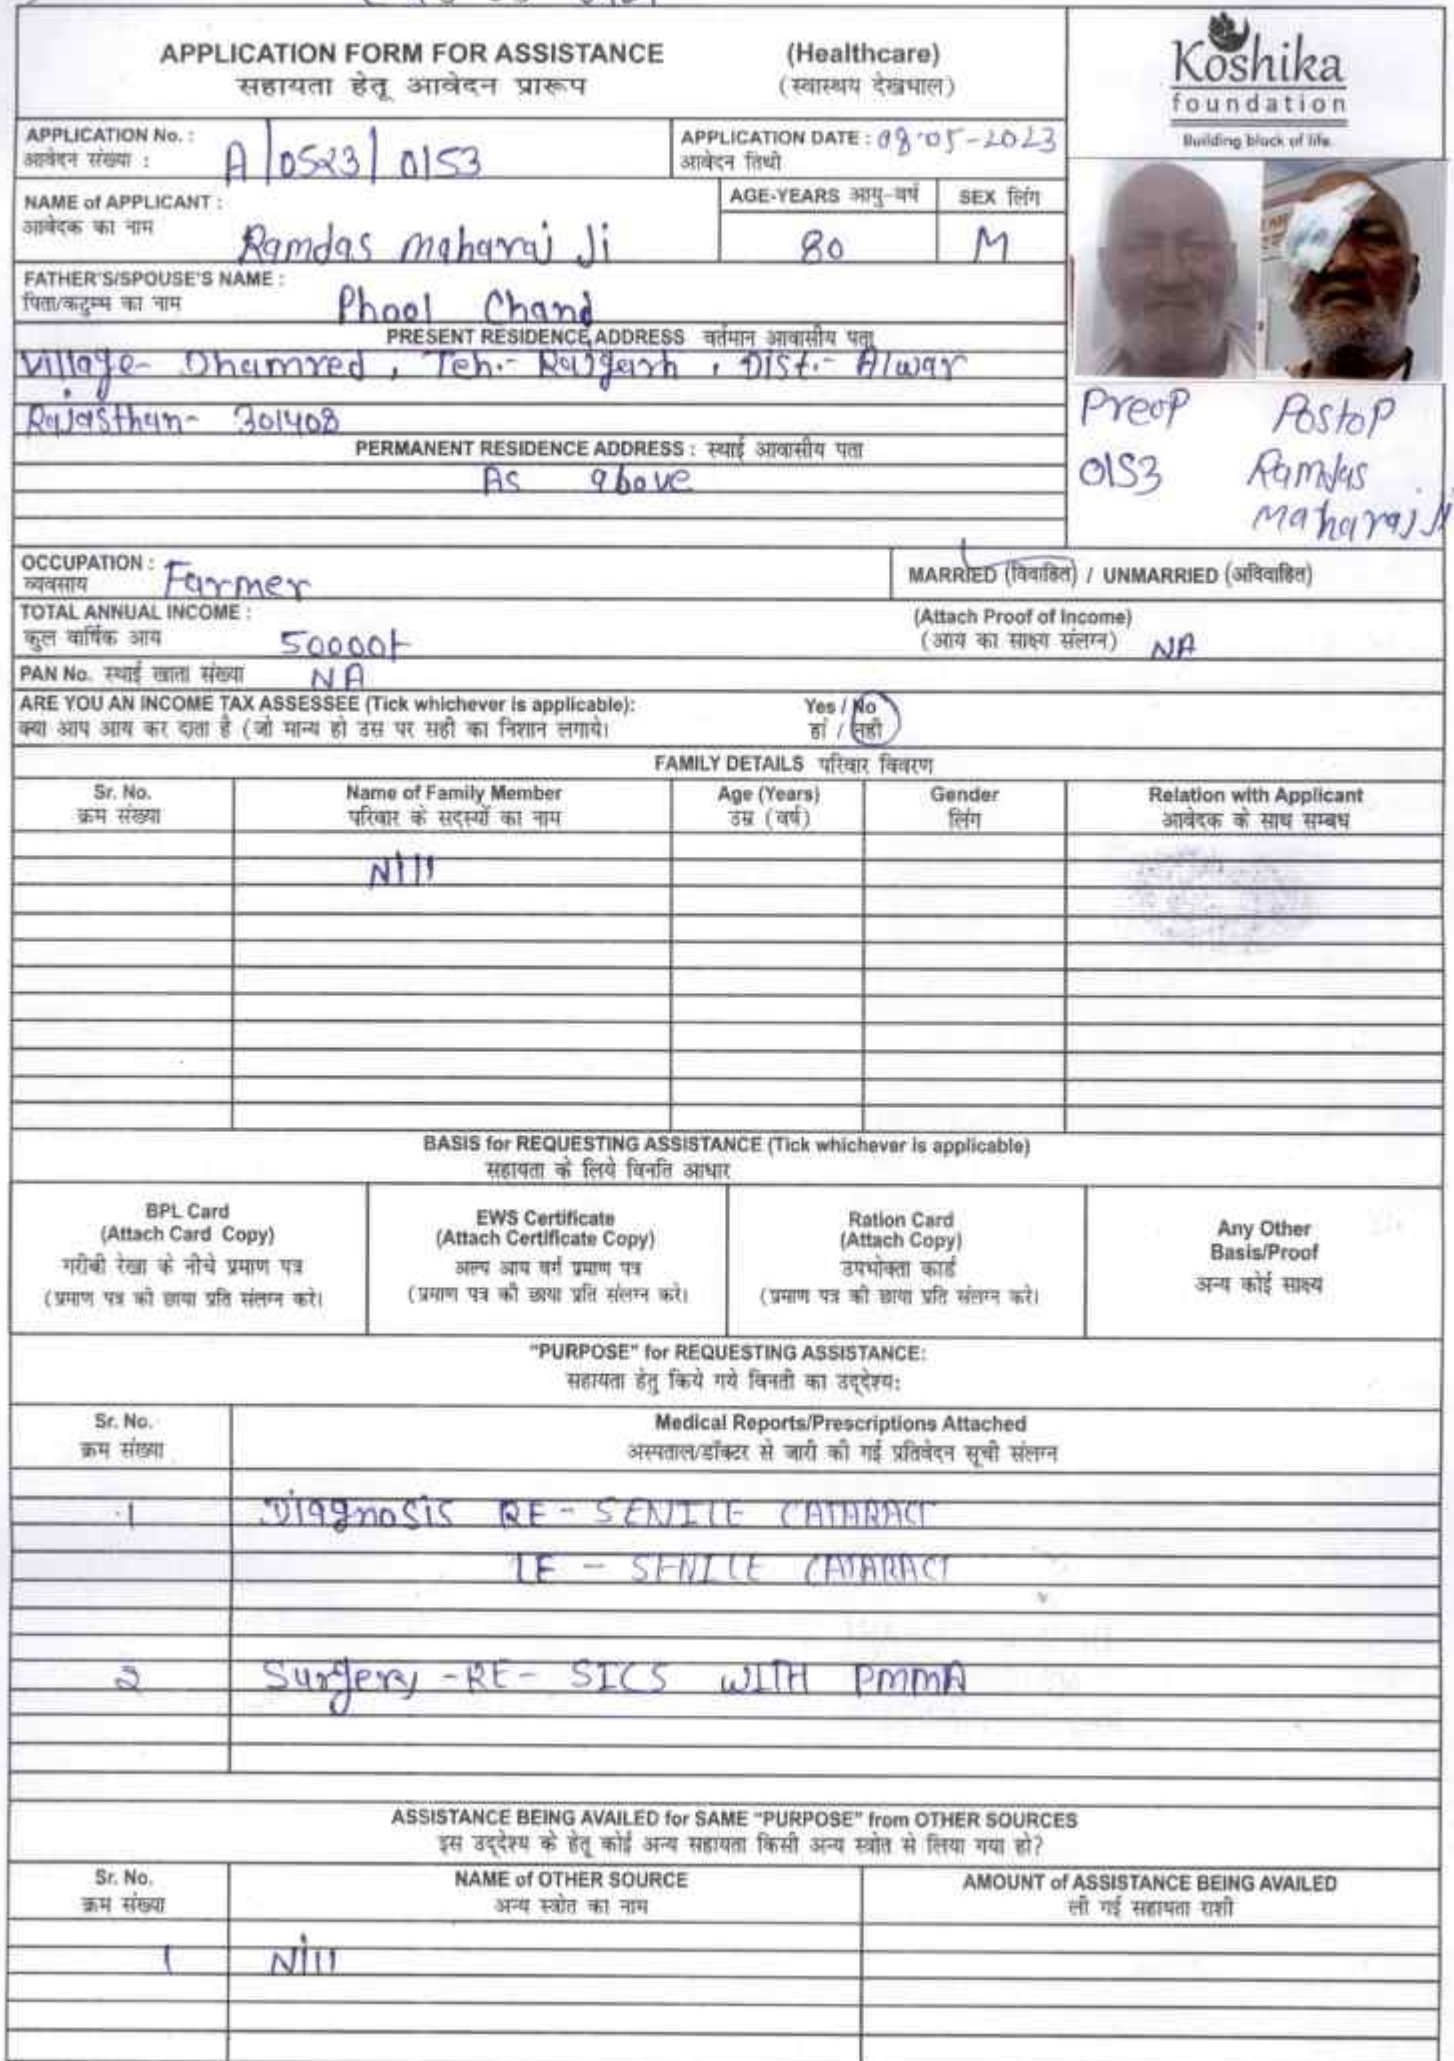 APPLICATION FORM FOR ASSISTANCE (Healthcare)
सहायता हेतू आवेदन प्रारूप (स्वास्थय देखभाल)
Koshika
foundation
Building block of life.
APPLICATION No. : A/0523/0153
आवेदन संख्या :
APPLICATION DATE : 08-05-2023
आवेदन तिथी
NAME of APPLICANT :
आवेदक का नाम Ramdas maharaj Ji
AGE-YEARS आयु-वर्ष
80
SEX लिंग
M
FATHER'S/SPOUSE'S NAME :
पिता/कटुम्ब का नाम Phool Chand
PRESENT RESIDENCE ADDRESS वर्तमान आवासीय पता
Village- Dhamred, Teh.- Rajgarh, Dist.- Alwar
Rajasthan- 301408
PERMANENT RESIDENCE ADDRESS : स्थाई आवासीय पता
As above
Preop Postop
0153 Ramdas
Maharaj Ji
OCCUPATION :
व्यवसाय Farmer
MARRIED (विवाहित) / UNMARRIED (अविवाहित)
TOTAL ANNUAL INCOME :
कुल वार्षिक आय 50000/-
(Attach Proof of Income)
(आय का साक्ष्य संलग्न) NA
PAN No. स्थाई खाता संख्या NA
ARE YOU AN INCOME TAX ASSESSEE (Tick whichever is applicable): Yes / No
क्या आप आय कर दाता है (जो मान्य हो उस पर सही का निशान लगाये। हां / नही
FAMILY DETAILS परिवार विवरण
Sr. No. Name of Family Member Age (Years) Gender Relation with Applicant
क्रम संख्या परिवार के सदस्यों का नाम उम्र (वर्ष) लिंग आवेदक के साथ सम्बध
Nill
BASIS for REQUESTING ASSISTANCE (Tick whichever is applicable)
सहायता के लिये विनति आधार
BPL Card
(Attach Card Copy)
गरीबी रेखा के नीचे प्रमाण पत्र
(प्रमाण पत्र की छाया प्रति संलग्न करे।
EWS Certificate
(Attach Certificate Copy)
अल्प आय वर्ग प्रमाण पत्र
(प्रमाण पत्र की छाया प्रति संलग्न करे।
Ration Card
(Attach Copy)
उपभोक्ता कार्ड
(प्रमाण पत्र की छाया प्रति संलग्न करे।
Any Other
Basis/Proof
अन्य कोई साक्ष्य
"PURPOSE" for REQUESTING ASSISTANCE:
सहायता हेतु किये गये विनती का उद्देश्य:
Sr. No. Medical Reports/Prescriptions Attached
क्रम संख्या अस्पताल/डॉक्टर से जारी की गई प्रतिवेदन सूची संलग्न
1 Diagnosis RE - SENILE CATARACT
LE - SENILE CATARACT
2 Surgery - RE - SICS WITH PMMA
ASSISTANCE BEING AVAILED for SAME "PURPOSE" from OTHER SOURCES
इस उद्देश्य के हेतू कोई अन्य सहायता किसी अन्य स्त्रोत से लिया गया हो?
Sr. No. NAME of OTHER SOURCE AMOUNT of ASSISTANCE BEING AVAILED
क्रम संख्या अन्य स्त्रोत का नाम ली गई सहायता राशी
1 Nill